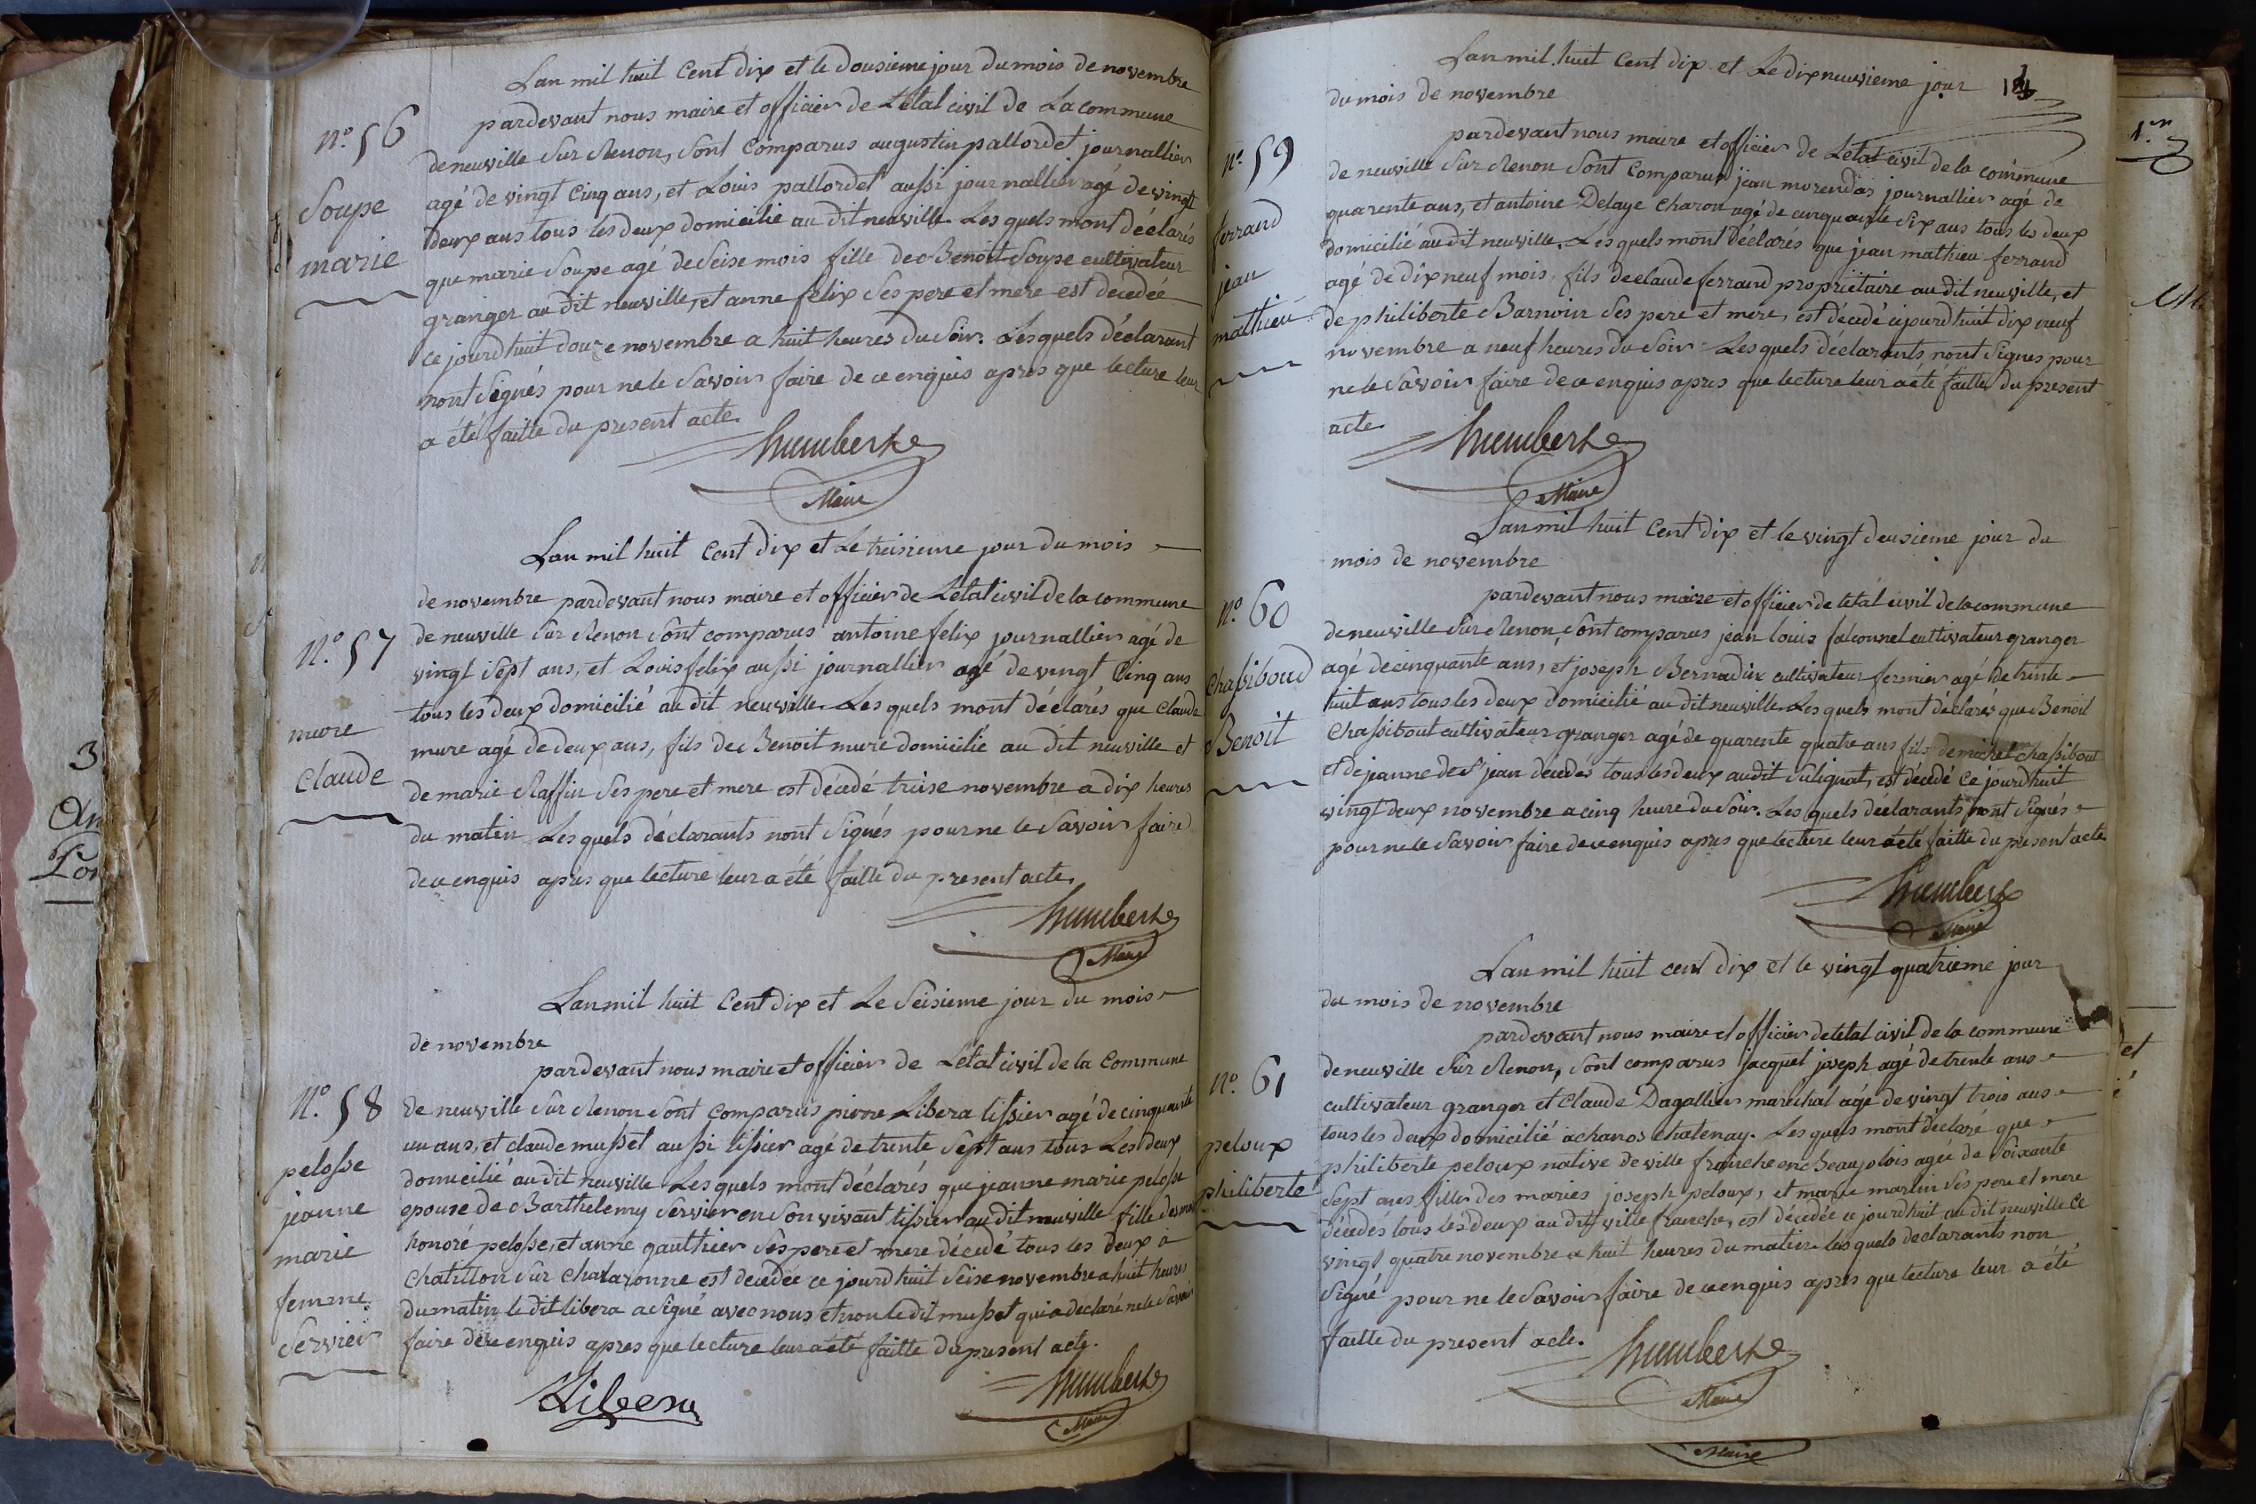 Lan mil huit Cent dix et le dousieme jour du mois de novembre
n.° 56
pardevant nous maire et officier de Létat civil de Lacommune
de neuville Sur Renon, Sont Comparus augustin pallordet journallier
Soupe
agé de vingt Cinq ans, et Louis pallordet aussi journallier agé de vingt
marie
deux ans tous les deux domicilié au dit neuville Les quels mont déclarés
que marie Soupe agé de Seise mois fille de Benoit Soupe cultivateur
granger au dit neuville, et anne félix Ses pere et mere est decedée
ce jourdhuit douze novembre a huit heures du Soir. Les quels déclarant
nont Signés pour ne le Savoir faire de ce enquis apres que lecture leur
a été faitte du present acte
humbert
Maire
Lan mil huit Cent dix et Le treisieme jour du mois
de novembre pardevant nous maire et officier de Létat civil de la commune
n.° 57
de neuville Sur Renon Sont comparus antoine felix journallier agé de
vingt Sept ans, et Louis felix aussi journallier agé de vingt Cinq ans
mure
tous les deux domicilié au dit neuville Les quels mont déclarés que Claude
claude
mure agé de deux ans, fils de Benoit mure domicilié au dit neuville et
de marie Raffin Ses pere et mere est décédé treise novembre a dix heures
du matin Les quels déclarants nont Signés pour ne le Savoir faire
de ce enquis apres que lecture leur a été faitte du present acte.
humbert
Maire
Lan mil huit Cent dix et Le Seisieme jour du mois
de novembre
pardevant nous maire et officier de Létat civil de la Commune
n.° 58
de neuville Sur Renon Sont Comparus pierre Libera tissier agé de cinquante
un ans, et claude musset aussi tissier agé de trente Sept ans tous Les deux
pelosse
domicilié au dit neuville Les quels mont déclarés que jeanne marie pelosse
jeanne
epouse de Barthelemy Servier en Son vivant tissier au dit neuville fille des
marie
honoré pelosse, et anne gauthier Ses pere et mere décédé tous les deux a
femme
Chatillon Sur Chalaronne est decedée ce jourdhuit Seise novembre a huit heures
Servier
du matin le dit libera a Signé avec nous et non le dit musset qui a déclaré ne le Savoir
faire de ce enquis apres que lecture leur a été faitte du present acte.
Libera
humbert
Maire
Lan mil huit Cent dix et Le dixneuvieme jour
du mois de novembre
n.° 59
pardevant nous maire et officier de Létat civil de la commune
de neuville Sur Renon Sont Comparus jean morendas journallier agé de
ferrand
quarente ans, et antoine Delaye Charon agé de cinquante Six ans tous les deux
jean
domicilié au dit neuville. Les quels mont déclarés que jean mathieu ferrand
mathieu
agé de dixneuf mois, fils de claude ferrand propriétaire au dit neuville, et
de philiberte Barnoin Ses pere et mere, est décédé cejourdhuit dix neuf
novembre a neuf heures du Soir Les quels déclarants nont Signes pour
ne le Savoir faire de ce enquis apres que lecture leur a été faitte du present
acte
humbert
Maire
Lan mil huit Cent dix et le vingt deusieme jour du
mois de novembre
n.° 60
pardevant nous maire et officier de létat civil de la commune
de neuville Sur Renon Sont comparus jean louis falconnet cultivateur granger
Chassiboud
agé de cinquante ans, et joseph Bernadin cultivateur fermier agé de trente
Benoit
huit ans tous les deux domicilié au dit neuville Les quels mont déclarés que Benoit
Chassibout cultivateur granger agé de quarente quatre ans fils de michel Chassibout
et de jeanne de St jean décédés tous les deux au dit Sulignat, est décédé ce jourdhuit
vingt deux novembre a cinq heure du Soir. Les quels declarants nont Signés
pour ne le Savoir faire de ce enquis apres que lecture leur a été faitte du present acte
humbert
Maire
Lan mil huit cent dix et le vingt quatrieme jour
du mois de novembre
pardevant nous maire et officier de létat civil de la commune
n.° 61
de neuville Sur Renon, Sont comparus jacquet joseph agé de trente ans
cultivateur granger et Claude Dagallier maréchal agé de vingt trois ans
peloux
tous les deux domicilié a chanos chatenay. Les quels mont déclaré que
philiberte
philiberte peloux native de ville franche en Beaujolois agée de Soixante
Sept ans fille des mariés joseph peloux, et marie martin Ses pere et mere
décédés tous les deux au dit ville franche, est décédée ce jourdhuit au dit neuville ce
vingt quatre novembre a huit heures du matin les quels declarants non
Signé pour ne le Savoir faire de ce enquis apres que lecture leur a été
faitte du present acte.
humbert
Maire
Maire